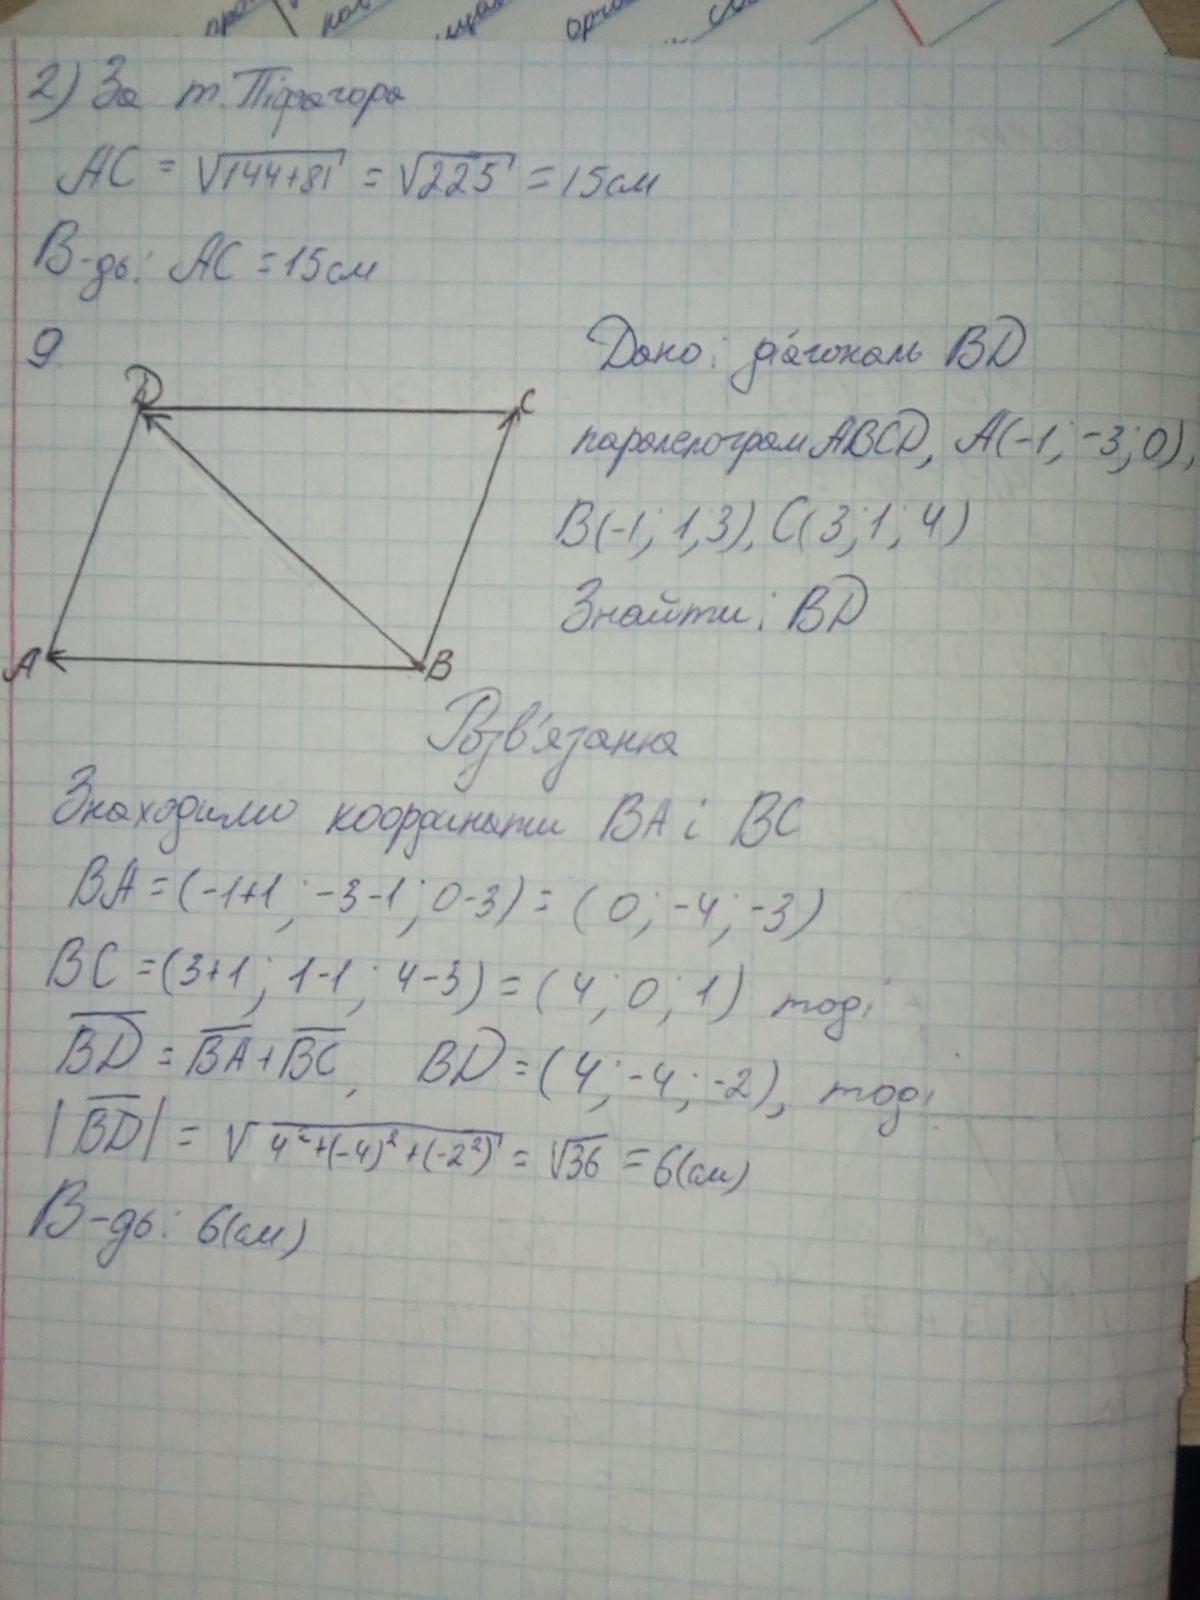 2) За т. Піфагора
AC = √144+81 = √225 = 15см
В-дь: AC = 15см
9.
D
C
A
B
Дано: діагональ BD
паралелограм ABCD, A(-1; -3; 0),
B(-1; 1; 3), C(3; 1; 4)
Знайти: BD
Розв'язання
Знаходимо координати BA і BC
BA = (-1+1; -3-1; 0-3) = (0; -4; -3)
BC = (3+1; 1-1; 4-3) = (4; 0; 1) тоді
BD = BA + BC, BD = (4; -4; -2), тоді
|BD| = √4²+(-4)²+(-2²) = √36 = 6(см)
В-дь: 6(см)